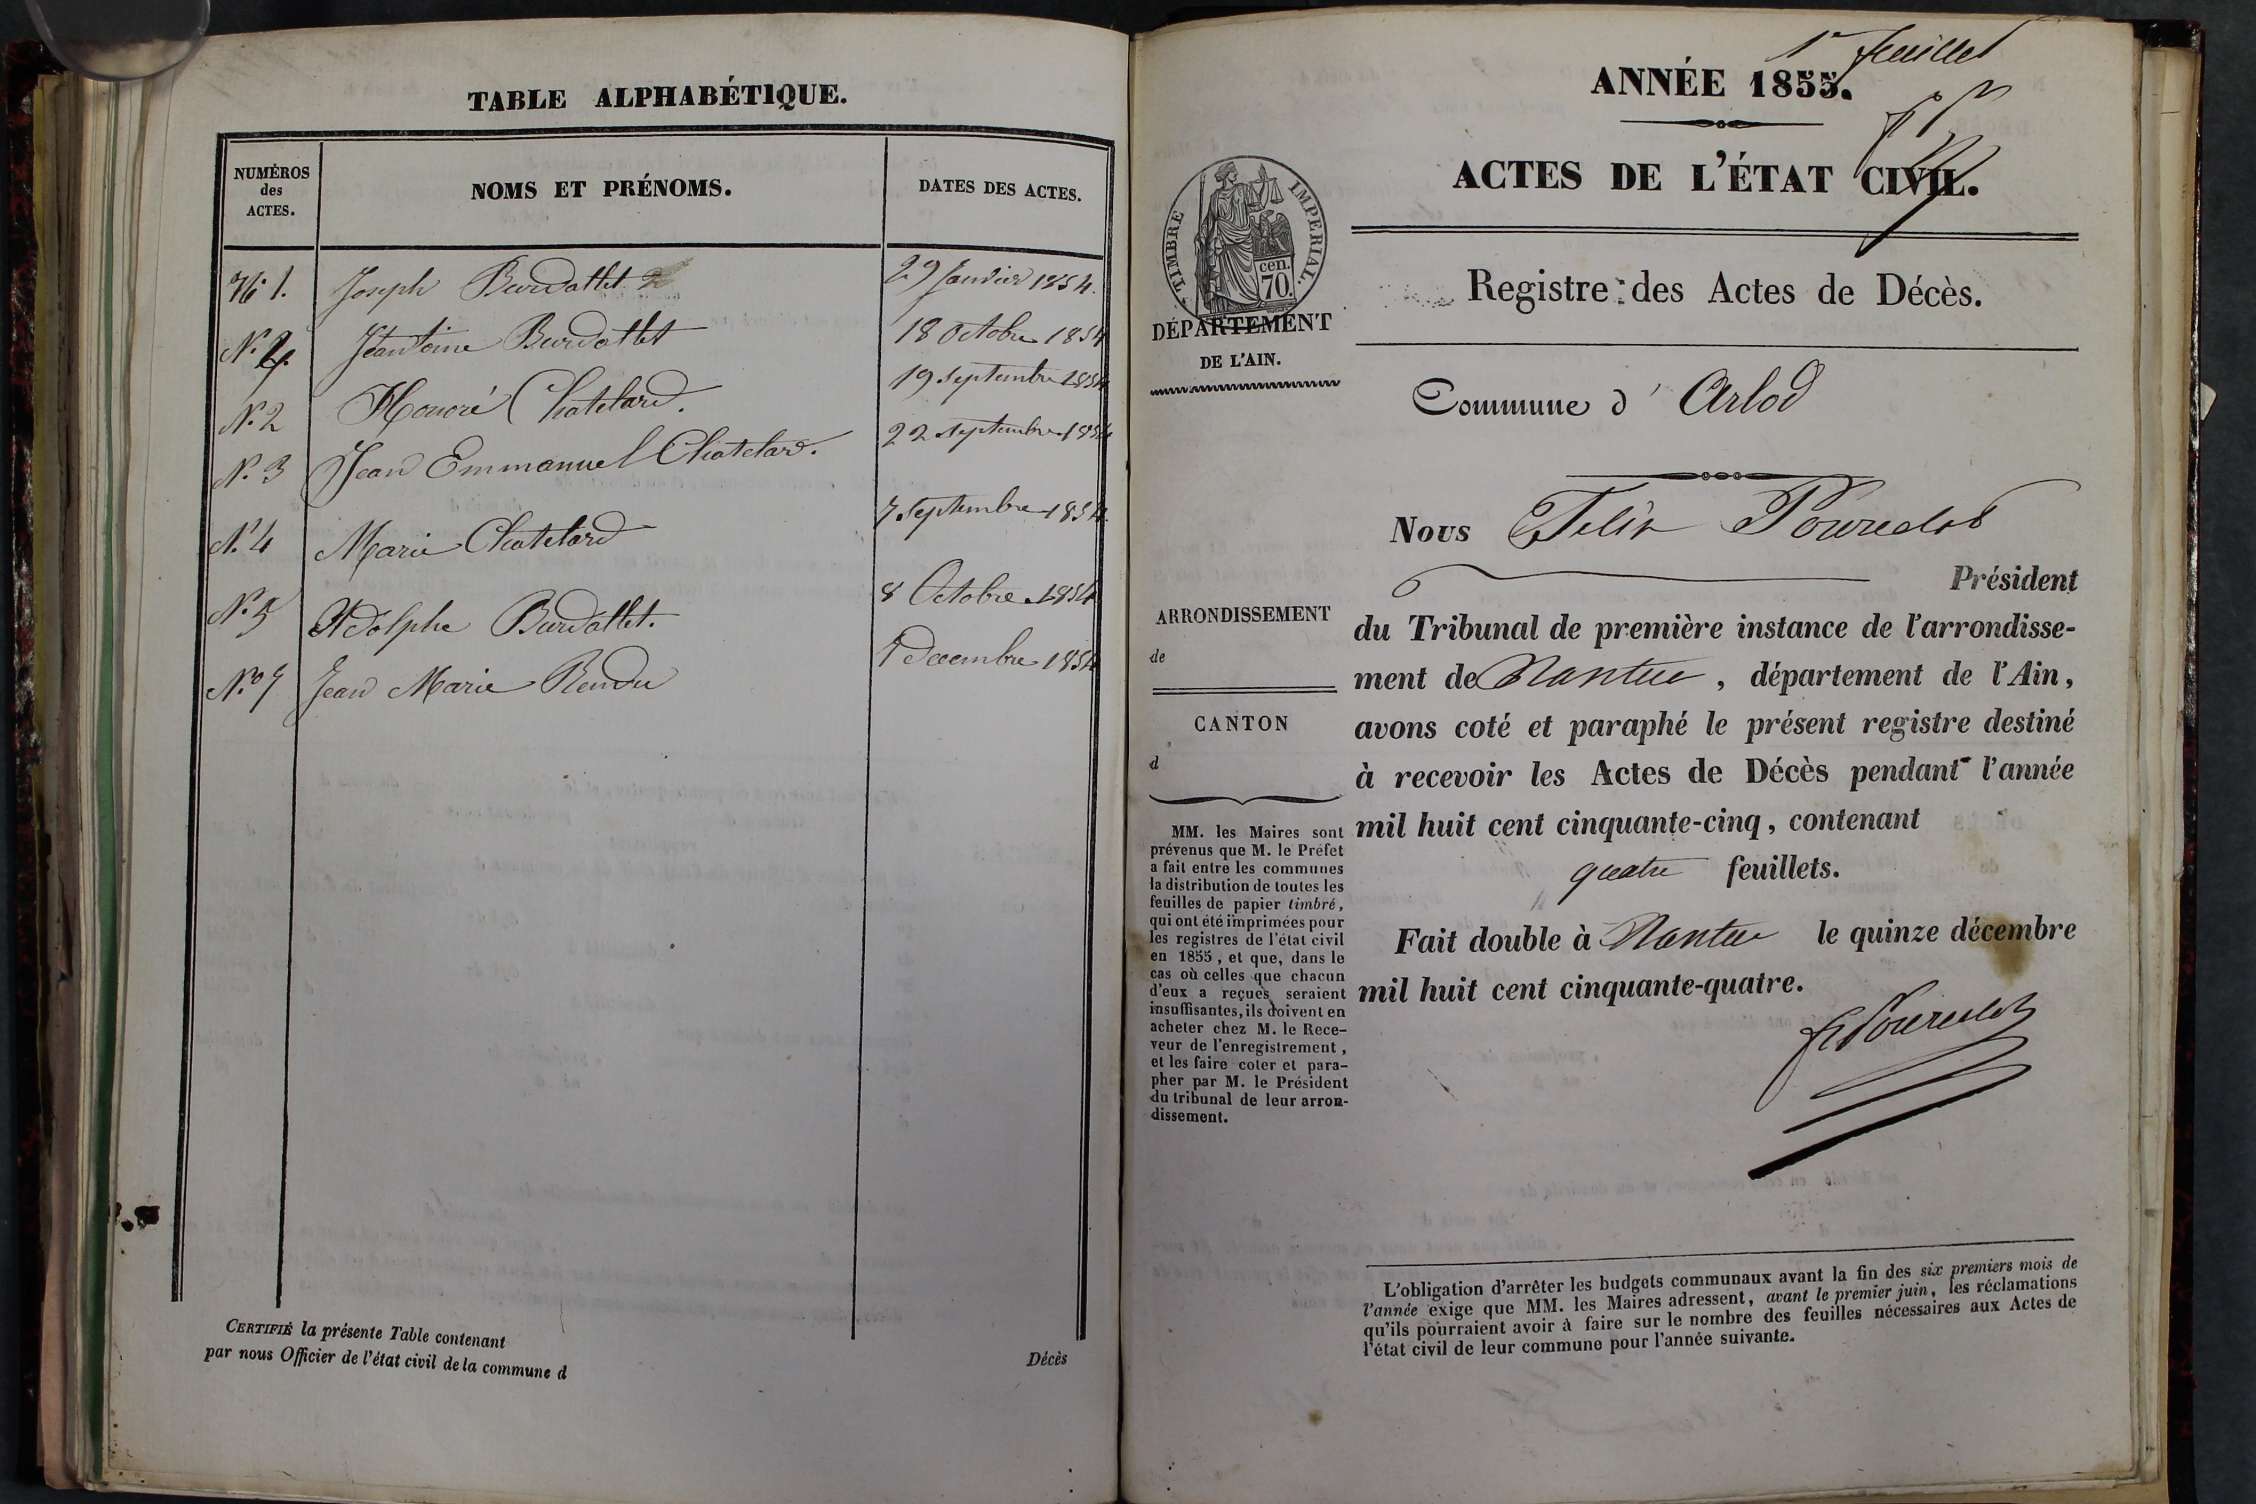 TABLE ALPHABÉTIQUE.
NUMÉROS
des
ACTES.
NOMS ET PRÉNOMS.
DATES DES ACTES.
No 1. Joseph Burdallet 29 Janvier 1854.
N. Burdallet 18 Octobre 1854
N. 2 Honoré Chatelard. 19 Septembre 1854
N. 3 Jean Emmanuel Chatelard. 22 septembre 1854
N. 4 Marie Chatelard 7 Septembre 1854.
N. 5 Adolphe Burdallet. 8 Octobre 1854
N.o 7 Jean Marie Rendu decembre 1854
CERTIFIÉ la présente Table contenant
par nous Officier de l'état civil de la commune d
Décès
1r feuillet
ANNÉE 1855.
ACTES DE L'ÉTAT CIVIL.
TIMBRE IMPERIAL.
cen.
70.
DÉPARTEMENT
DE L'AIN.
Registre des Actes de Décès.
Commune d' Arlod
Nous Félix
Président
ARRONDISSEMENT
de
CANTON
d
du Tribunal de première instance de l'arrondisse-
ment de Nantua, département de l'Ain,
avons coté et paraphé le présent registre destiné
à recevoir les Actes de Décès pendant l'année
mil huit cent cinquante-cinq, contenant
quatre feuillets.
Fait double à Nantua le quinze décembre
mil huit cent cinquante-quatre.
MM. les Maires sont
prévenus que M. le Préfet
a fait entre les communes
la distribution de toutes les
feuilles de papier timbré,
qui ont été imprimées pour
les registres de l'état civil
en 1855, et que, dans le
cas où celles que chacun
d'eux a reçues seraient
insuffisantes, ils doivent en
acheter chez M. le Rece-
veur de l'enregistrement,
et les faire coter et para-
pher par M. le Président
du tribunal de leur arron-
dissement.
L'obligation d'arrêter les budgets communaux avant la fin des six premiers mois de
l'année exige que MM. les Maires adressent, avant le premier juin, les réclamations
qu'ils pourraient avoir à faire sur le nombre des feuilles nécessaires aux Actes de
l'état civil de leur commune pour l'année suivante.